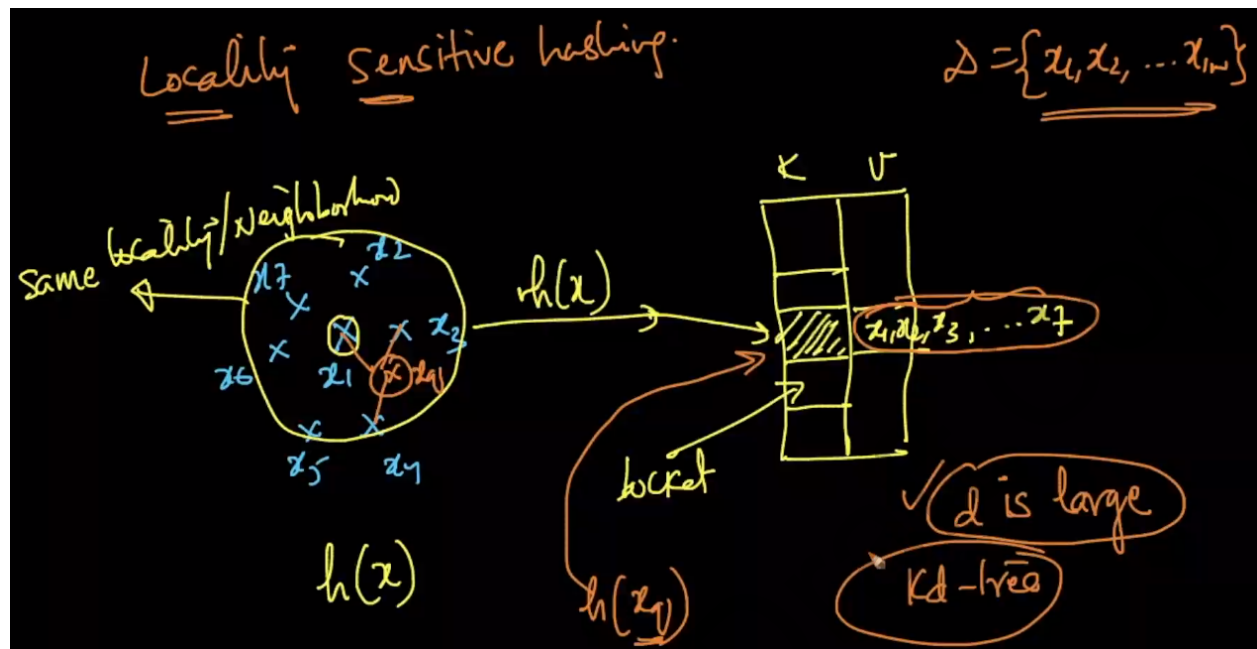 Locality Sensitive hashing.
D = {x1, x2, ... xn}
K V
same locality/Neighborhood
x7 x2
x3
x6 x1 xq
x5 x4
h(x)
x1, x2, x3, ... x7
bocket
h(x)
h(xq)
d is large
Kd-tree